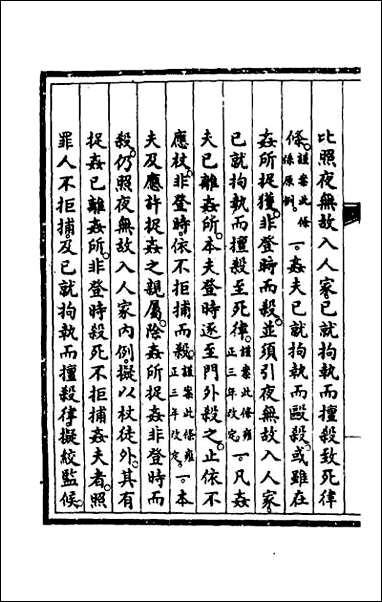 比照夜無故入人家已就拘執而擅殺致死律
條。謹案此條係原例。一。姦夫已就拘執而毆殺。或雖在
姦所捉獲。非登時而殺。並須引夜無故入人家。
已就拘執而擅殺至死律。謹案此條雍正三年改定。一。凡姦
夫已離姦所。本夫登時逐至門外殺之。止依不
應杖。非登時依不拒捕而殺。謹案此條雍正三年改定。一。本
夫及應許捉姦之親屬。除姦所捉姦非登時而
殺。仍照夜無故入人家內例。擬以杖徒外。其有
捉姦已離姦所。非登時殺死不拒捕姦夫者。照
罪人不拒捕。及已就拘執而擅殺律。擬絞監候。